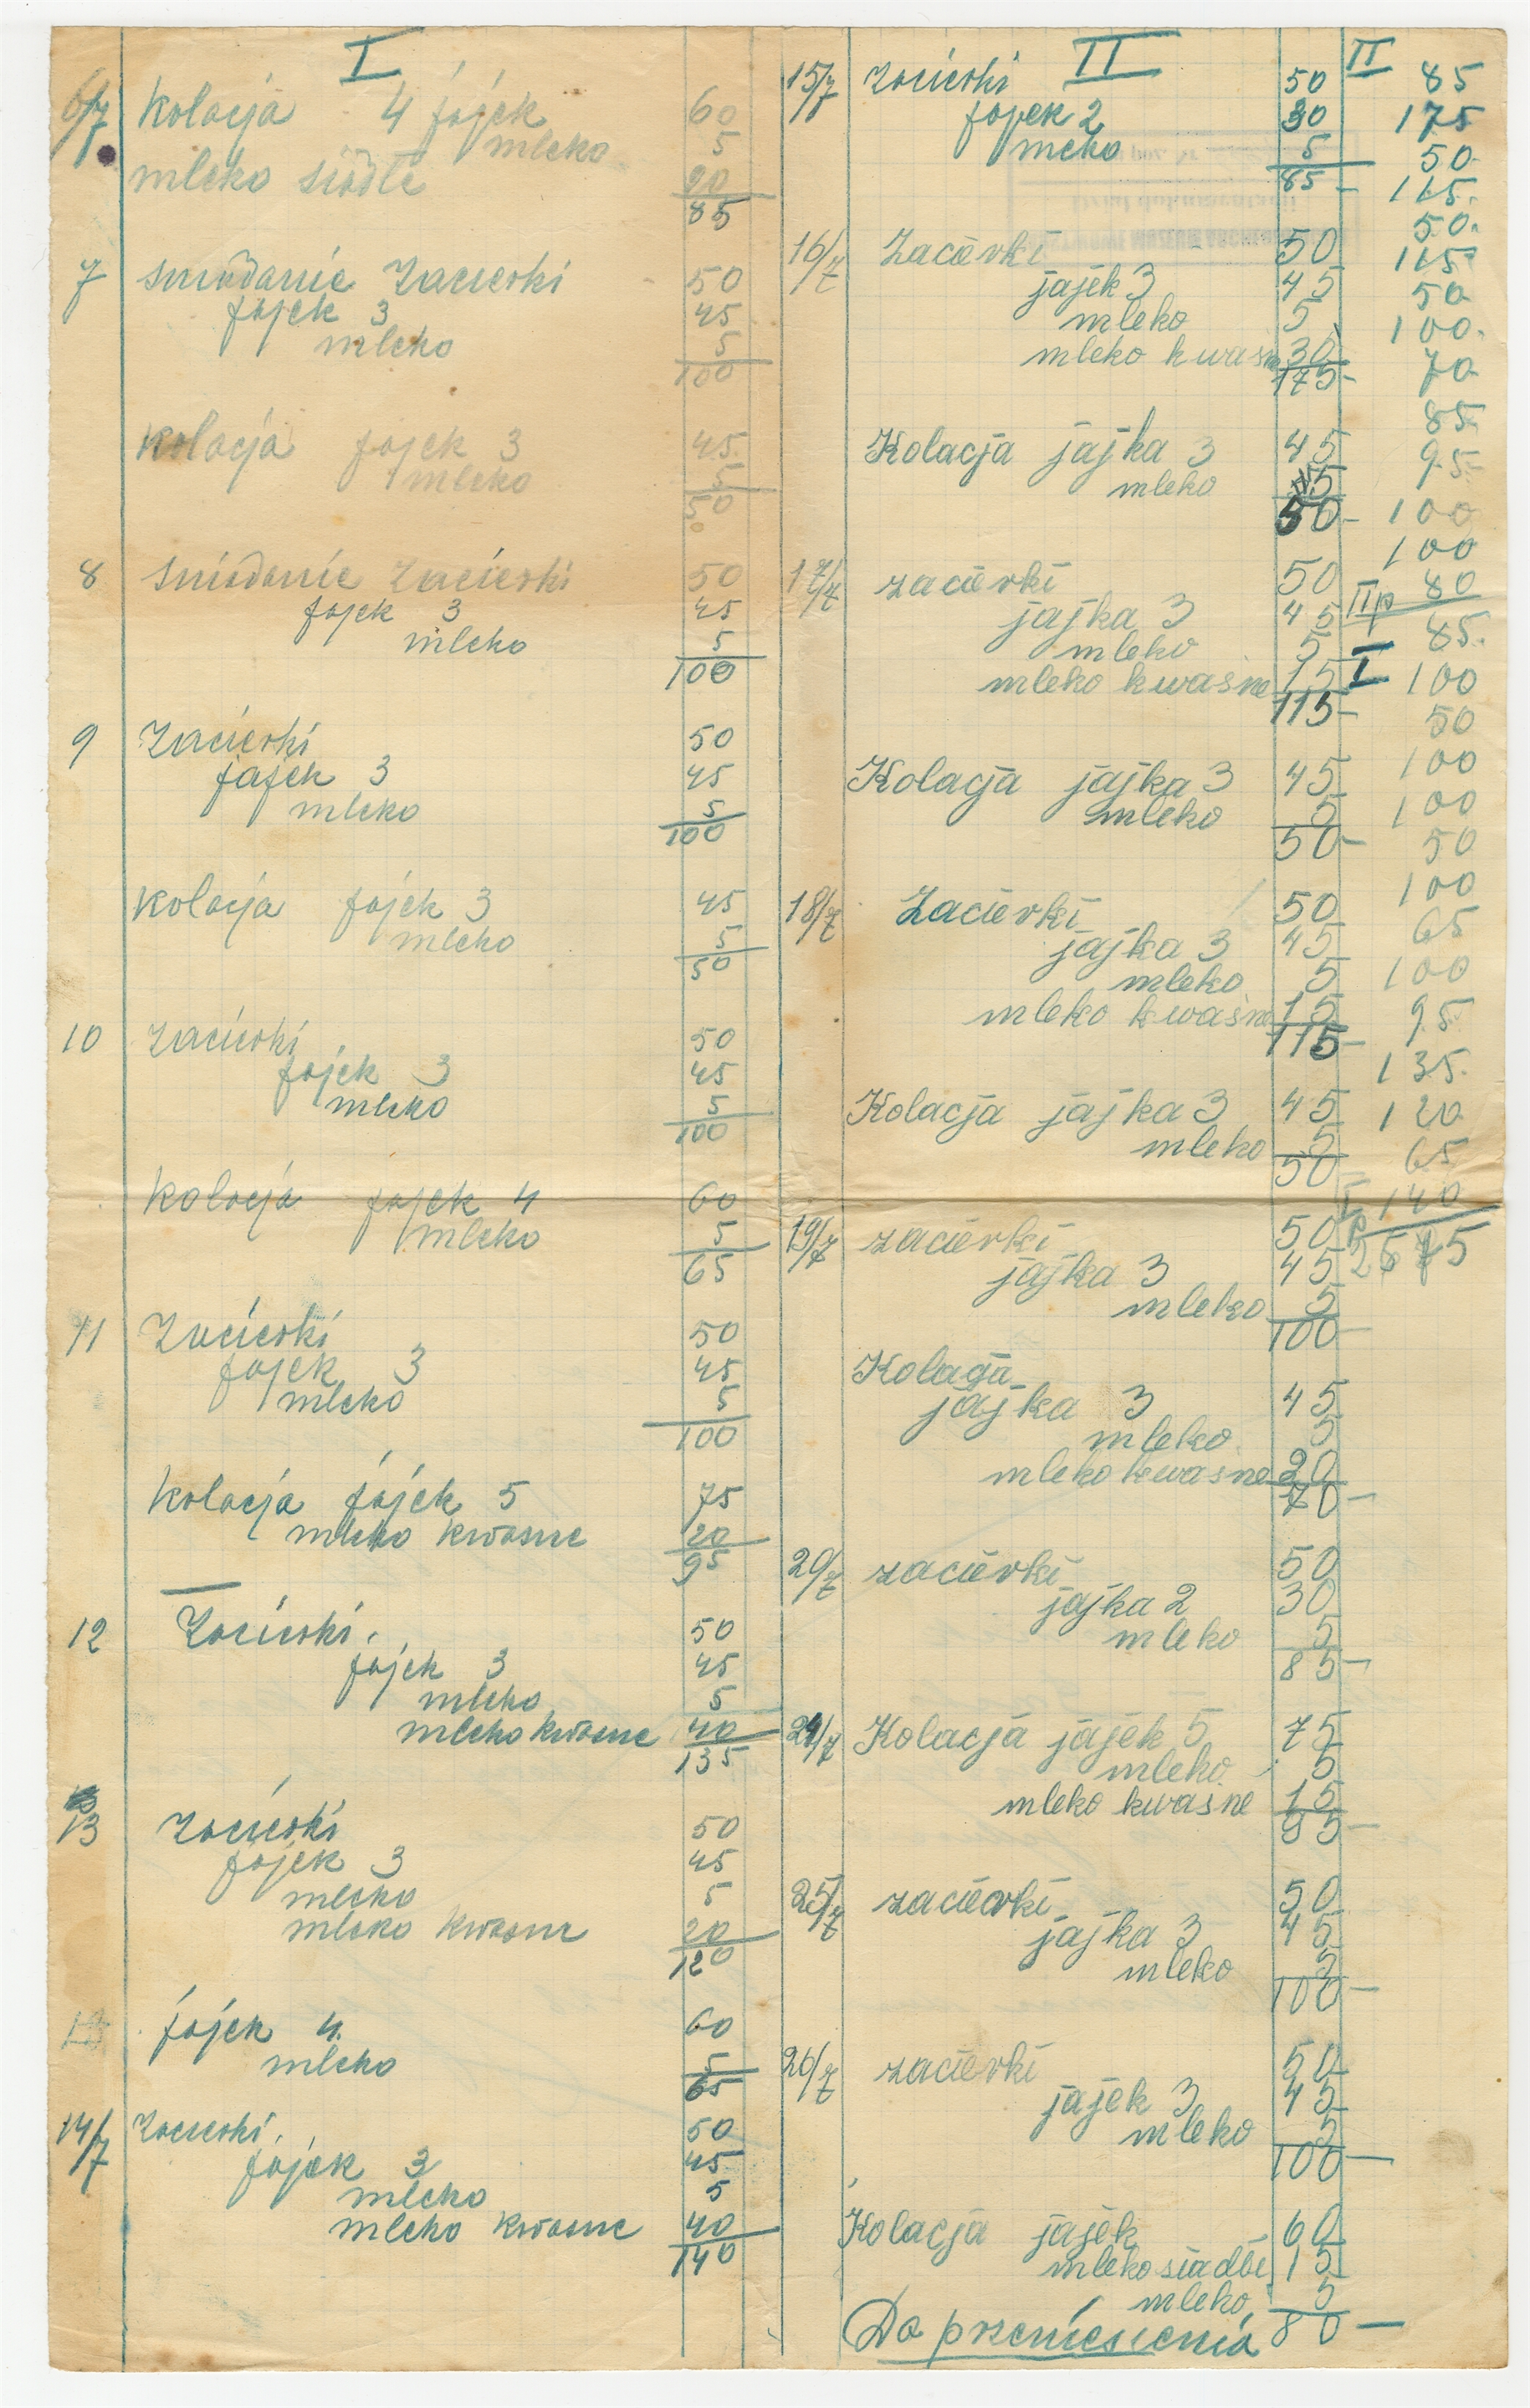 I
6/7 Kolacja 4 jajek 60
mleko 5
mleko siadłe 20
85
7 sniadanie Zacierki 50
jajek 3 45
mleko 5
100
Kolacja jajek 3 45
mleko 5
50
8 sniadanie Zacierki 50
jajek 3 45
mleko 5
100
9 Zacierki 50
jajek 3 45
mleko 5
100
Kolacja jajek 3 45
mleko 5
50
10 Zacierki 50
jajek 3 45
mleko 5
100
Kolacja jajek 4 60
mleko 5
65
11 Zacierki 50
jajek 3 45
mleko 5
100
Kolacja jajek 5 75
mleko kwasne 20
95
12 Zacierki. 50
jajek 3 45
mleko 5
mleko kwasne 40
135
13 Zacierki 50
jajek 3 45
mleko 5
mleko kwasne 20
120
jajek 4. 60
mleko 5
65
14/7 Zacierki. 50
jajek 3 45
mleko 5
mleko kwasne 40
140
II
15/7 Zacierki 50
jajek 2 30
mleko 5
85 -
16/7 Zacierki 50
jajek 3 45
mleko 5
mleko kwaśne 30
175 -
Kolacja jajka 3 45
mleko 5
50 -
17/7 zacierki 50
jajka 3 45
mleko 5
mleko kwaśne 15
115 -
Kolacja jajka 3 45
mleko 5
50 -
18/7 Zacierki 50
jajka 3 45
mleko 5
mleko kwaśne 15
115 -
Kolacja jajka 3 45
mleko 5
50
19/7 zacierki 50
jajka 3 45
mleko 5
100 -
Kolacja
jajka 3 45
mleko 5
mleko kwasne 20
70 -
20/7 zacierki 50
jajka 2 30
mleko 5
85 -
24/7 Kolacja jajek 5 75
mleko 5
mleko kwaśne 15
95 -
25/7 zacierki 50
jajka 3 45
mleko 5
100 -
26/7 zacierki 50
jajek 3 45
mleko 5
100 -
Kolacja jajek 60
mleko siadłe 15
mleko 5
80 -
Do przeniesienia
II 85
175
50
115.
50.
115
50
100.
70
85.
95.
100
100
IIp 80
85.
I 100
50
100
100
50
100
65
100
95
135.
120
65
I p 140
2675